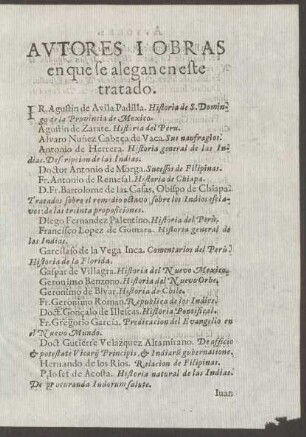 AVTORES I OBRAS
en que ſe alegan en eſte
tratado.
FR. Aguſtin de Avila Padilla. Hiſtoria de S. Domin-
go de la Provincia de Mexico.
Aguſtin de Zarate. Hiſtoria del Peru.
Alvaro Nuñez Cabeça de Vaca. Sus naufragios.
Antonio de Herrera. Hiſtoria general de las In-
dias. Deſcripcion de las Indias.
Doctor Antonio de Morga. Suceſſos de Filipinas.
Fr. Antonio de Remeſal. Hiſtoria de Chiapa.
D. Fr. Bartolome de las Caſas, Obiſpo de Chiapa.
Tratados ſobre el remedio octavo, ſobre los Indios eſcla-
vos: de las treinta propoſiciones.
Diego Fernandez Palentino. Hiſtoria del Perù.
Franciſco Lopez de Gomara. Hiſtoria general de
las Indias.
Garcilaſſo de la Vega Inca. Comentarios del Perù:
Hiſtoria de la Florida.
Gaſpar de Villagra. Hiſtoria del Nuevo Mexico.
Geronimo Benzono. Hiſtoria del Nuevo Orbe.
Geronimo de Bivar. Hiſtoria de Chile.
Fr. Geronimo Roman. Republica de los Indios.
Doct. Gonçalo de Illeſcas. Hiſtoria Pontifical.
Fr. Gregorio Garcia. Predicacion del Evangelio en
el Nuevo Mundo.
Doct. Gutierre Velazquez Altamirano. De officio
& poteſtate Vicarij Principis, & Indiarũ gubernatione.
Hernando de los Rios. Relacion de Filipinas.
P. Ioſef de Acoſta. Hiſtoria natural de las Indias.
De procuranda Indorum ſalute.
Iuan